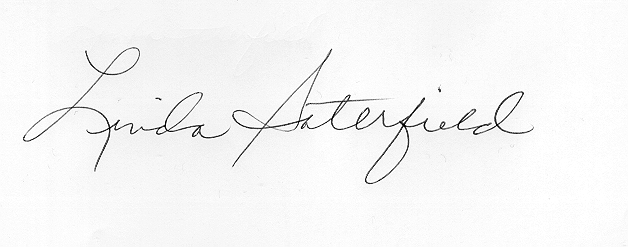 Linda Saterfield